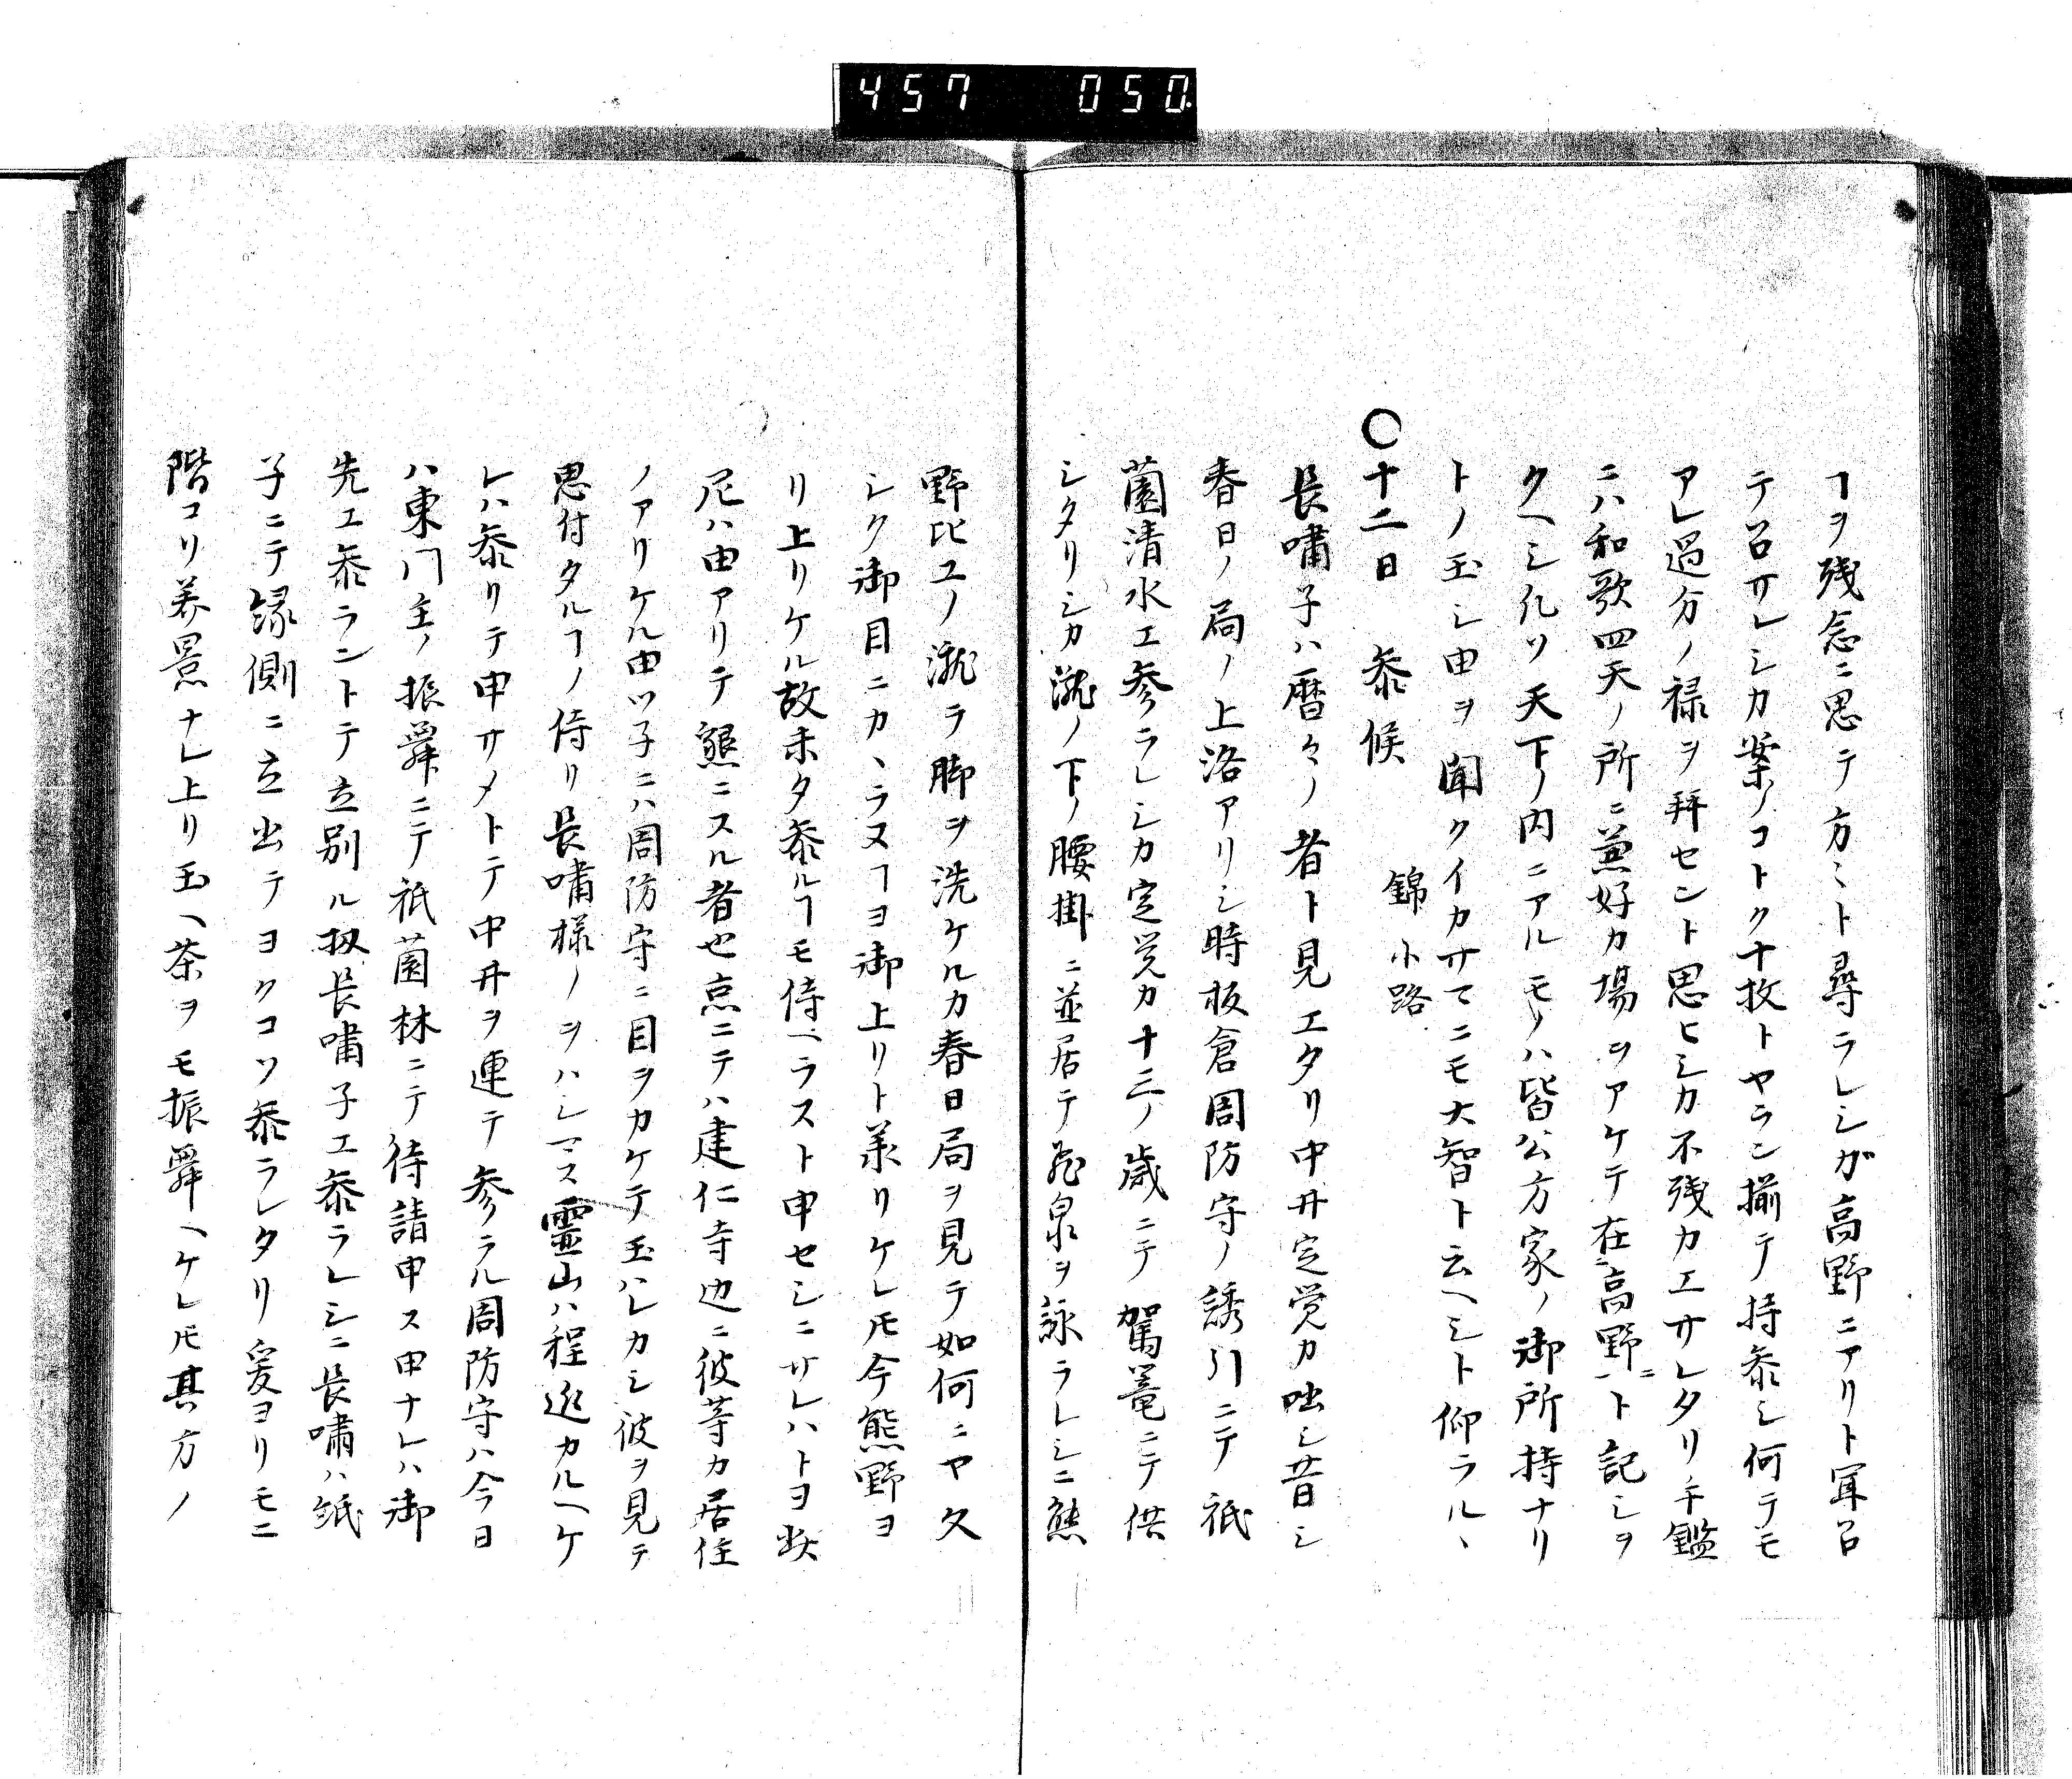 457 050
ヿヲ残念ニ思テ方〻ト尋ラレシガ高野ニアリト冥召
テ召サレシカ案ノコトク十枚トヤラン揃テ持叅シ何テモ
アレ過分ノ禄ヲ拜セント思ヒシカ不残カエサレタリ手鑑
ニハ和歌四天ノ所ニ兼好カ場ヲアケテ在高野ニト記シヲ
クヘシ化ソ天下ノ内ニアルモノハ皆公方家ノ御所持ナリ
トノ玉シ由ヲ聞クイカサマニモ大智ト云ヘシト仰ラルヽ
〇十二日 叅候 錦小路
長嘯子ハ暦々ノ者ト見エタリ中井定覚カ咄シ昔シ
春日ノ局ノ上洛アリシ時板倉周防守ノ誘引ニテ祇
薗清水エ参ラレシカ定覚カ十三ノ歳ニテ駕篭ニテ供
シタリシカ瀧ノ下ノ腰掛ニ並居テ飛泉ヲ詠ラレシニ熊
野比丘ノ瀧ヲ脚ヲ洗ケルカ春日局ヲ見テ如何ニヤ久
シク御目ニカヽラヌヿヨ御上リト承リケレ𪜈今熊野ヨ
リ上リケル故未タ叅ルヿモ侍ヘラスト申セシニサレハトヨ此
尼ハ由アリテ懇ニスル者也京ニテハ建仁寺辺ニ彼等カ居住
ノアリケル由ツ子ニハ周防守ニ目ヲカケテ玉ハレカシ彼ヲ見テ
思付タルヿノ侍リ長嘯様ノヲハシマス霊山ハ程近カルヘケ
レハ叅リテ申サメトテ中井ヲ連テ参ラル周防守ハ今日
ハ東門主ノ振舞ニテ祇薗林ニテ待請申ス申ナレハ御
先エ叅ラントテ立別ル扨長嘯子エ叅ラレシニ長嘯ハ紙
子ニテ縁側ニ立出テヨクコソ叅ラレタリ爰ヨリモ二
階コソ美景ナレ上リ玉ヘ茶ヲモ振舞ヘケレ𪜈其方ノ